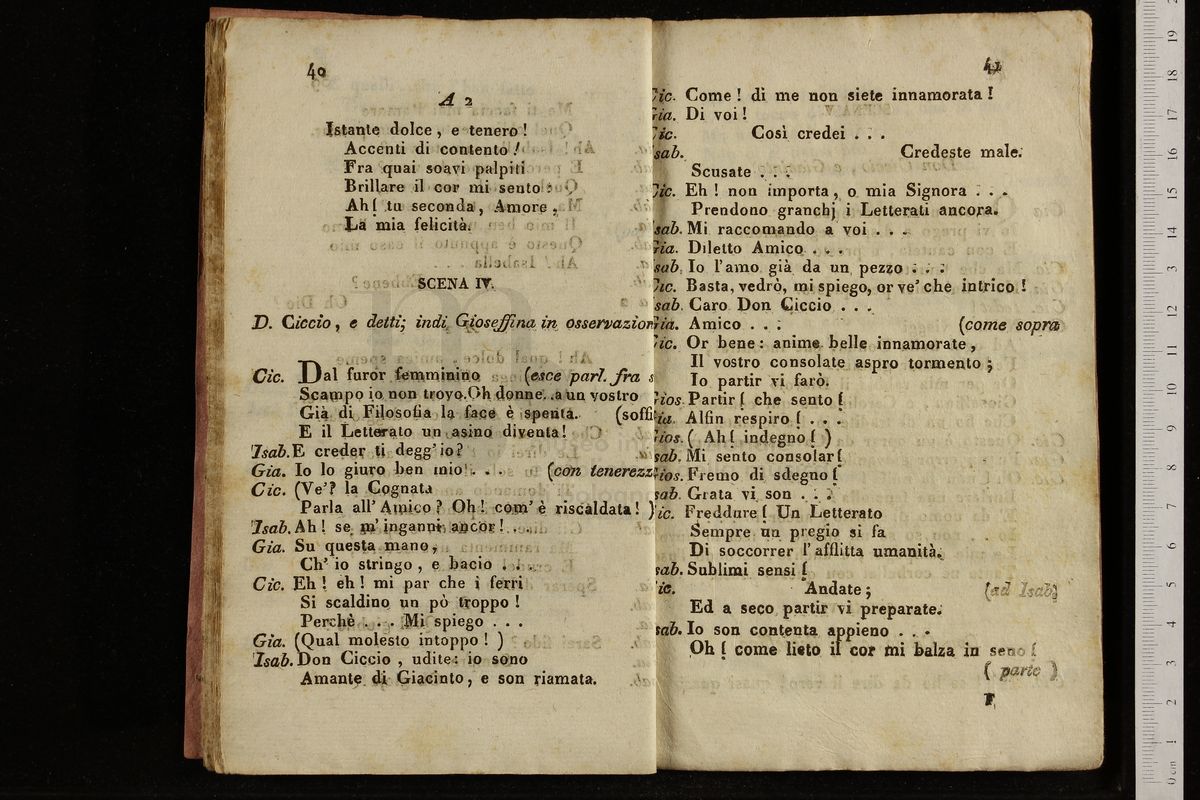 40
A 2
Istante dolce, e tenero!
Accenti di contento!
Fra quai soavi palpiti
Brillare il cor mi sento:
Ah! tu seconda, Amore,
La mia felicità.
SCENA IV.
D. Ciccio, e detti; indi Gioseffina in osservazion
Cic. Dal furor femminino (esce parl. fra s
Scampo io non trovo. Oh donne..a un vostro
Già di Filosofia la face è spenta. (soffi
E il Letterato un asino diventa!
Isab. E creder ti degg' io?
Gia. Io lo giuro ben mio . . . (con tenerezz
Cic. (Ve'? la Cognata
Parla all' Amico? Oh! com' è riscaldata! )
Isab. Ah! se m' inganni ancor! . . .
Gia. Su questa mano,
Ch' io stringo, e bacio . . .
Cic. Eh! eh! mi par che i ferri
Si scaldino un pò troppo!
Perchè . . . Mi spiego . . .
Gia. (Qual molesto intoppo! )
Isab. Don Ciccio, udite: io sono
Amante di Giacinto, e son riamata.
41
Cic. Come! di me non siete innamorata!
Gia. Di voi!
Cic. Così credei . . .
Isab. Credeste male.
Scusate . . .
Cic. Eh! non importa, o mia Signora . . .
Prendono granchj i Letterati ancora.
Isab. Mi raccomando a voi . . .
Gia. Diletto Amico . . .
Isab. Io l'amo già da un pezzo . . .
Cic. Basta, vedrò, mi spiego, or ve' che intrico!
Isab. Caro Don Ciccio . . .
Gia. Amico . . . (come sopra
Cic. Or bene: anime belle innamorate,
Il vostro consolate aspro tormento;
Io partir vi farò.
Gios. Partir! che sento!
Gia. Alfin respiro! . . .
Gios. ( Ah! indegno! )
Isab. Mi sento consolar!
Gios. Fremo di sdegno!
Isab. Grata vi son . . .
Cic. Freddure! Un Letterato
Sempre un pregio si fa
Di soccorrer l'afflitta umanità.
Isab. Sublimi sensi!
Cic. Andate; (ad Isab.
Ed a seco partir vi preparate.
Isab. Io son contenta appieno . . .
Oh! come lieto il cor mi balza in seno!
( parte )